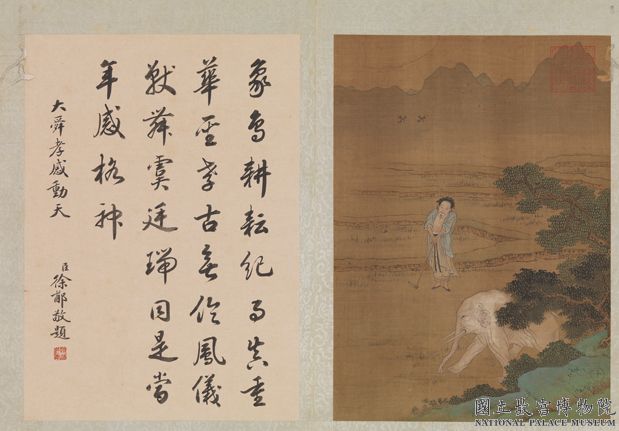 象鳥耕耘紀事真重
華聖孝古無倫鳳儀
獸舞虞廷瑞同是當
年感格神
大舜孝感動天
臣徐郙敬題
國立故宮博物院
NATIONAL PALACE MUSEUM